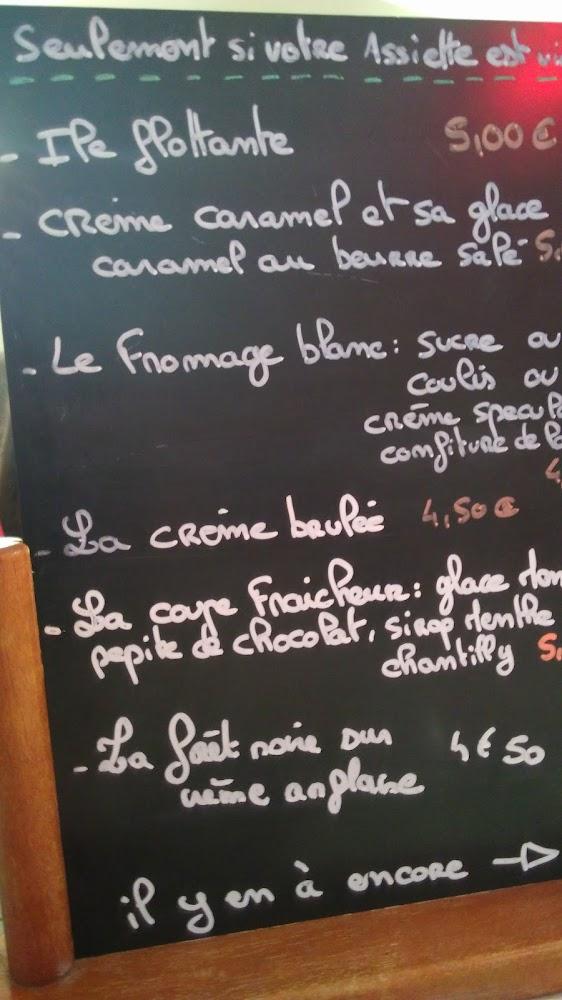 Seulement si votre Assiette est vi
- Ile flottante 5,00 €
- Crème caramel et sa glace
caramel au beurre salé 5,
- Le Fromage blanc : sucre ou
coulis ou
crème specul
confiture de l
4,
- La crème brulée 4,50 €
- La coupe Fraicheur : glace
pepite de chocolat, sirop menthe
chantilly 5,
- La forêt noire sur 4€50
crème anglaise
il y en à encore →